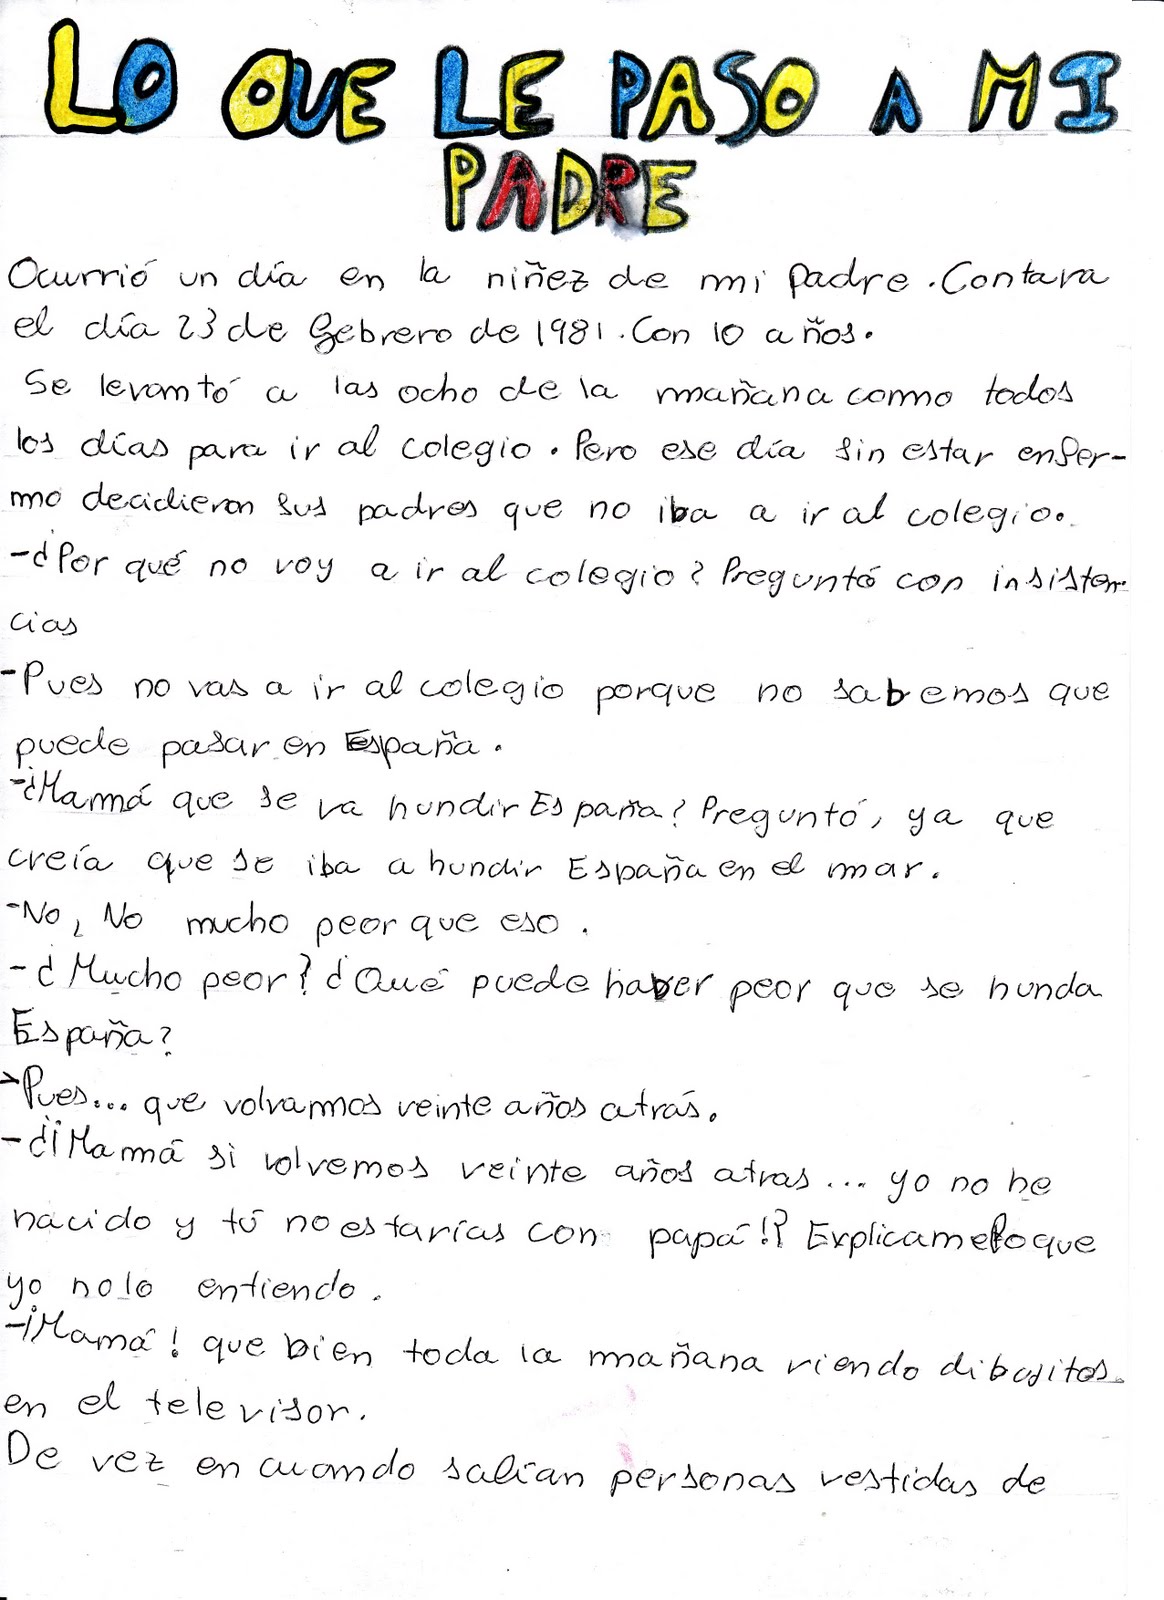 LO QUE LE PASO A MI
PADRE
Ocurrió un día en la niñez de mi padre. Contava
el día 23 de febrero de 1981. Con 10 años.
Se levantó a las ocho de la mañana como todos
los días para ir al colegio. Pero ese día sin estar enfer-
mo decidieron sus padres que no iba a ir al colegio.
-¿Por qué no voy a ir al colegio? Preguntó con insisten-
cias
-Pues no vas a ir al colegio porque no sabemos que
puede pasar en España.
-¿Mamá que se va hundir España? Preguntó, ya que
creía que se iba a hundir España en el mar.
-No, No mucho peor que eso.
-¿Mucho peor? ¿Qué puede haber peor que se hunda
España?
-Pues... que volvamos veinte años atrás.
-¿¡Mamá si volvemos veinte años atras... yo no he
nacido y tú no estarías con papá!? Explicamelo que
yo no lo entiendo.
-¡Mamá! que bien toda la mañana viendo dibujitos
en el televisor.
De vez en cuando salían personas vestidas de